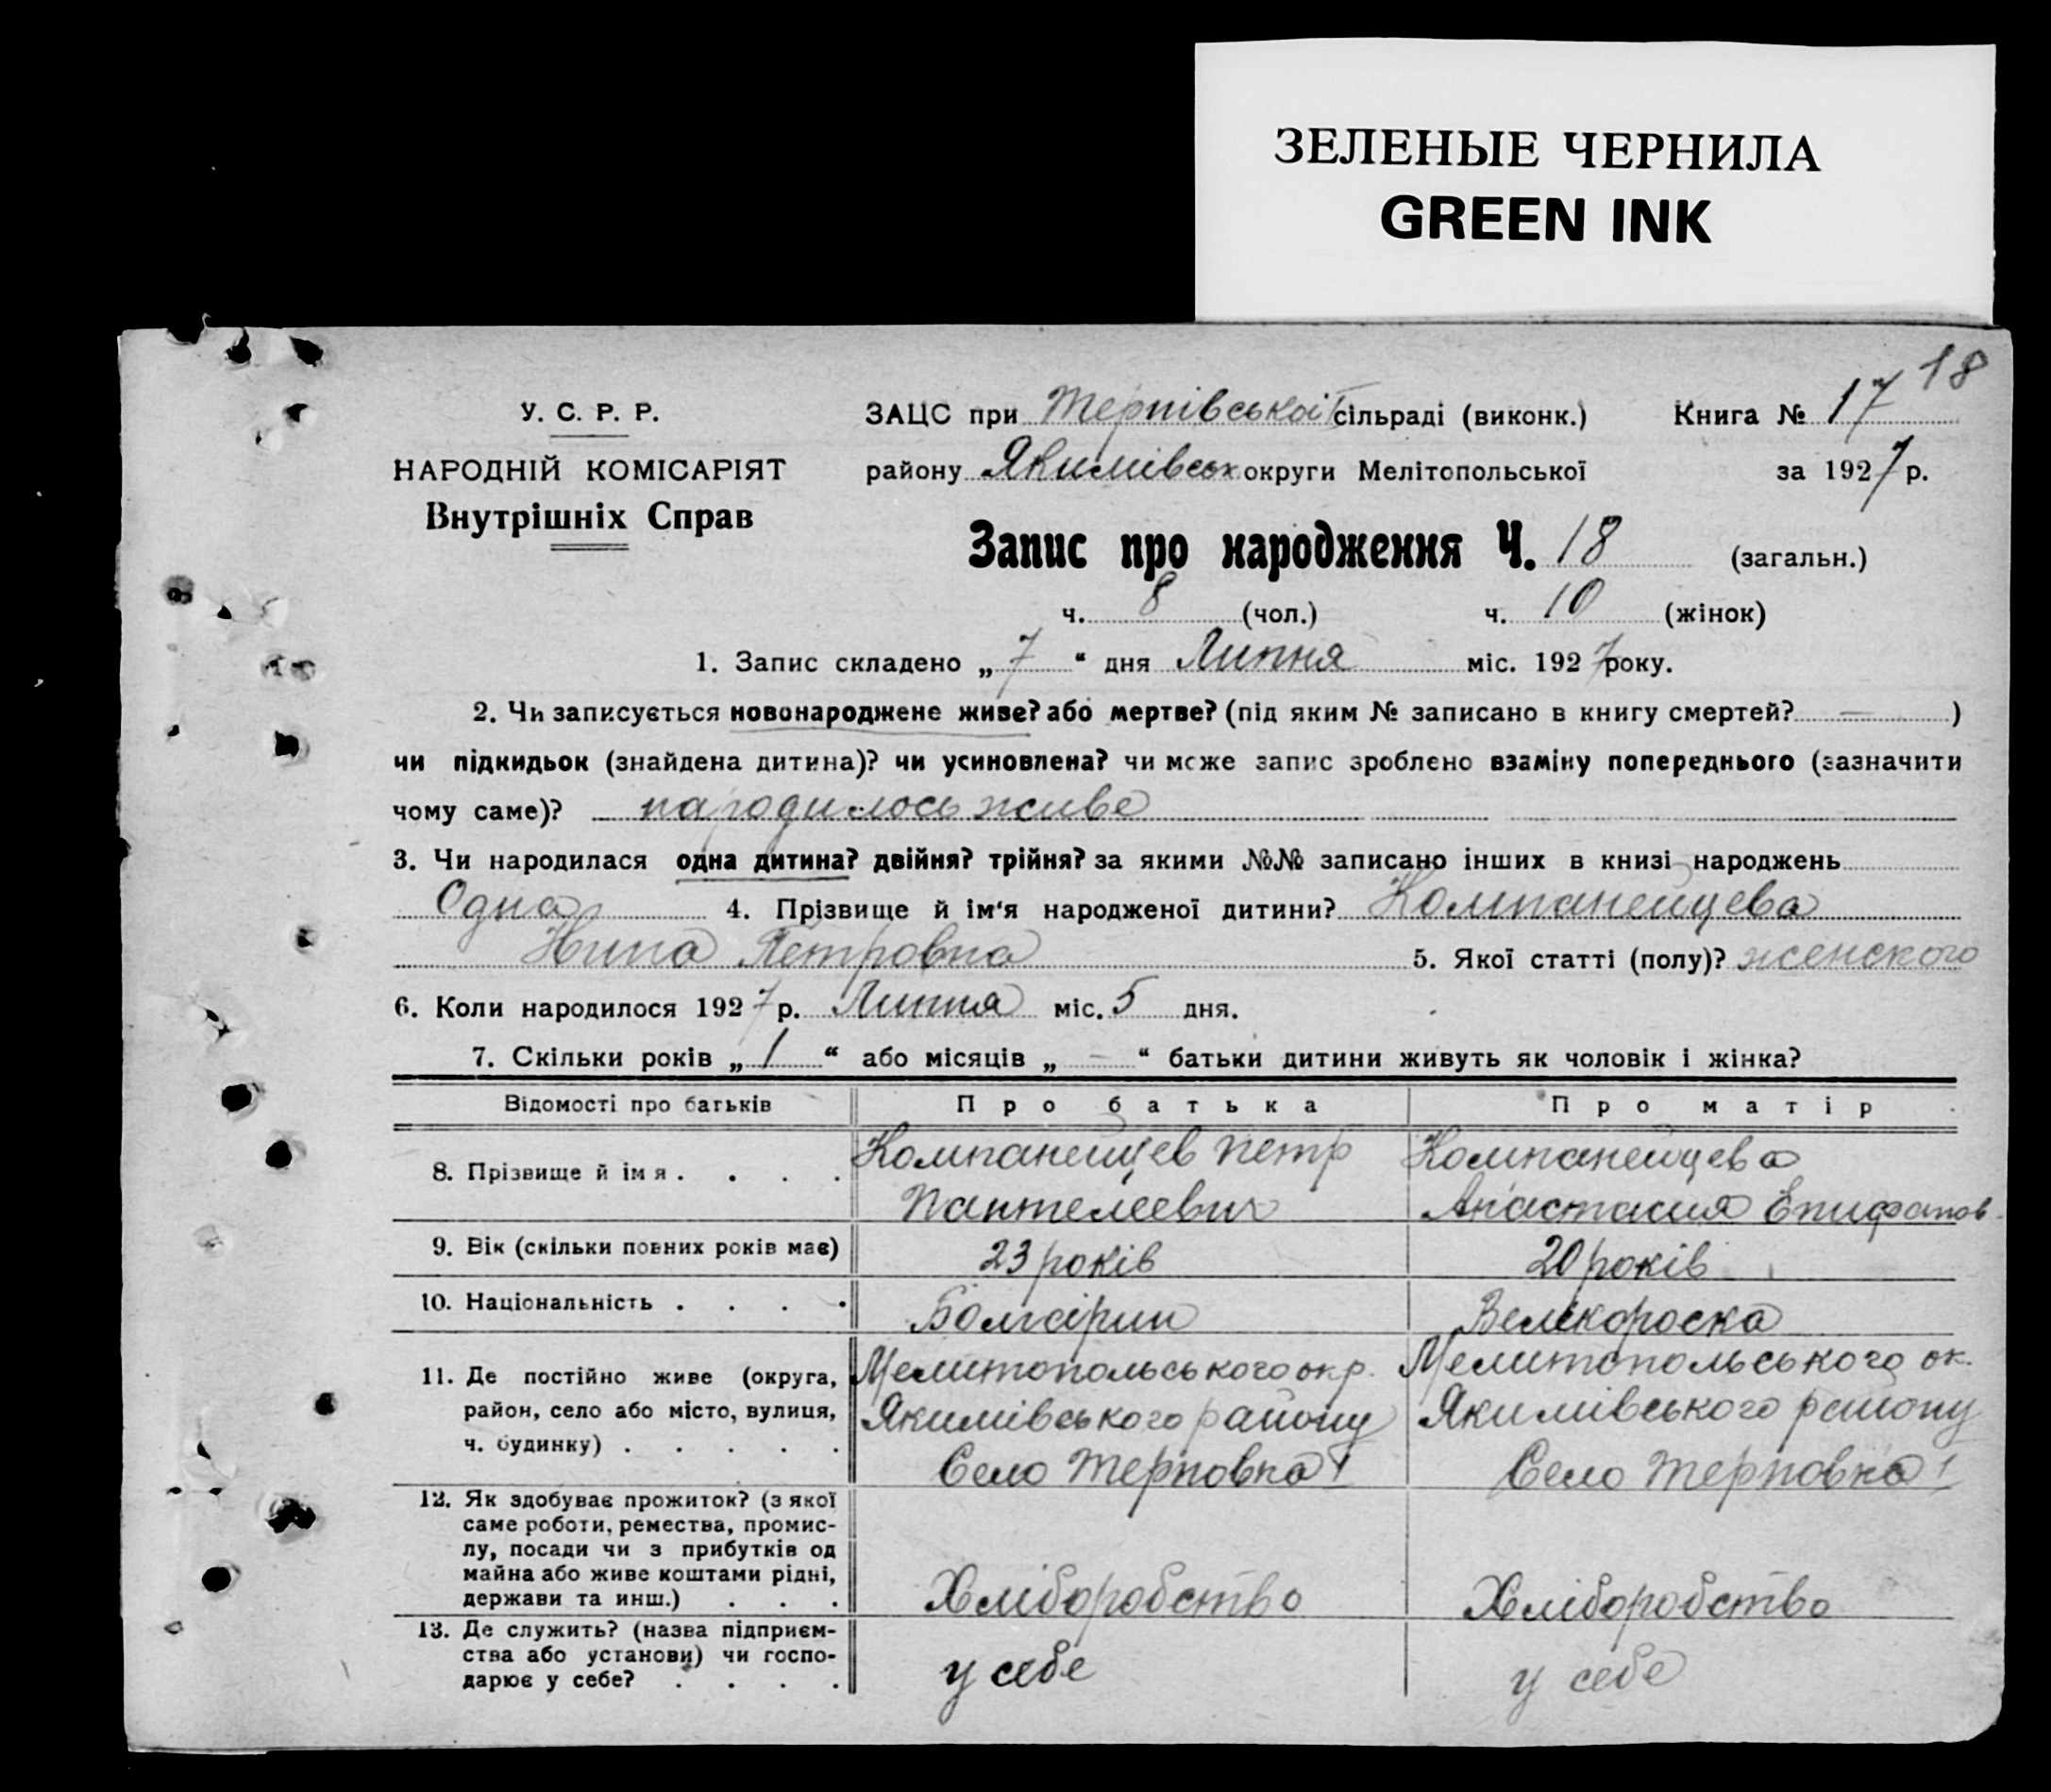 ЗЕЛЕНЫЕ ЧЕРНИЛА
GREEN INK
18
У. С. Р. Р.
НАРОДНІЙ КОМІСАРІЯТ
Внутрішніх Справ
ЗАЦС при Терпівської I сільраді (виконк.) Книга № 17
району Якимівськ округи Мелітопольської за 1927 р.
Запис про народження Ч. 18 (загальн.)
ч. 8 (чол.) ч. 10 (жінок)
1. Запис складено „ 7 “ дня Липня міс. 1927 року.
2. Чи записується новонароджене живе? або мертве? (під яким № записано в книгу смертей? — )
чи підкидьок (знайдена дитина)? чи усиновлена? чи може запис зроблено взаміну попереднього (зазначити
чому саме)? народилось живе
3. Чи народилася одна дитина? двійня? трійня? за якими №№ записано інших в книзі народжень
Одна 4. Прізвище й ім‘я народженої дитини? Компанейцева
Нина Петровна 5. Якої статті (полу)? женского
6. Коли народилося 1927 р. Липня міс. 5 дня.
7. Скільки років „ 1 “ або місяців „ — “ батьки дитини живуть як чоловік і жінка?
Відомості про батьків Про батька Про матір
8. Прізвище й ім я . . . . Компанейцев Петр Компанейцева
Пантелеевич Анастасия Епифанов
9. Вік (скільки повних років має) 23 років 20 років
10. Національність . . . . Болгарин Велекороска
11. Де постійно живе (округа, Мелитопольського окр. Мелитопольського ок.
район, село або місто, вулиця, Якимівського району Якимівського району
ч. будинку) . . . . . Село Терповка I Село Терповка I
12. Як здобуває прожиток? (з якої
саме роботи, ремества, промис-
лу, посади чи з прибутків од
майна або живе коштами рідні,
держави та инш.) . . . Хліборобство Хліборобство
13. Де служить? (назва підприєм-
ства або установи) чи госпо-
дарює у себе? . . . . у себе у себе